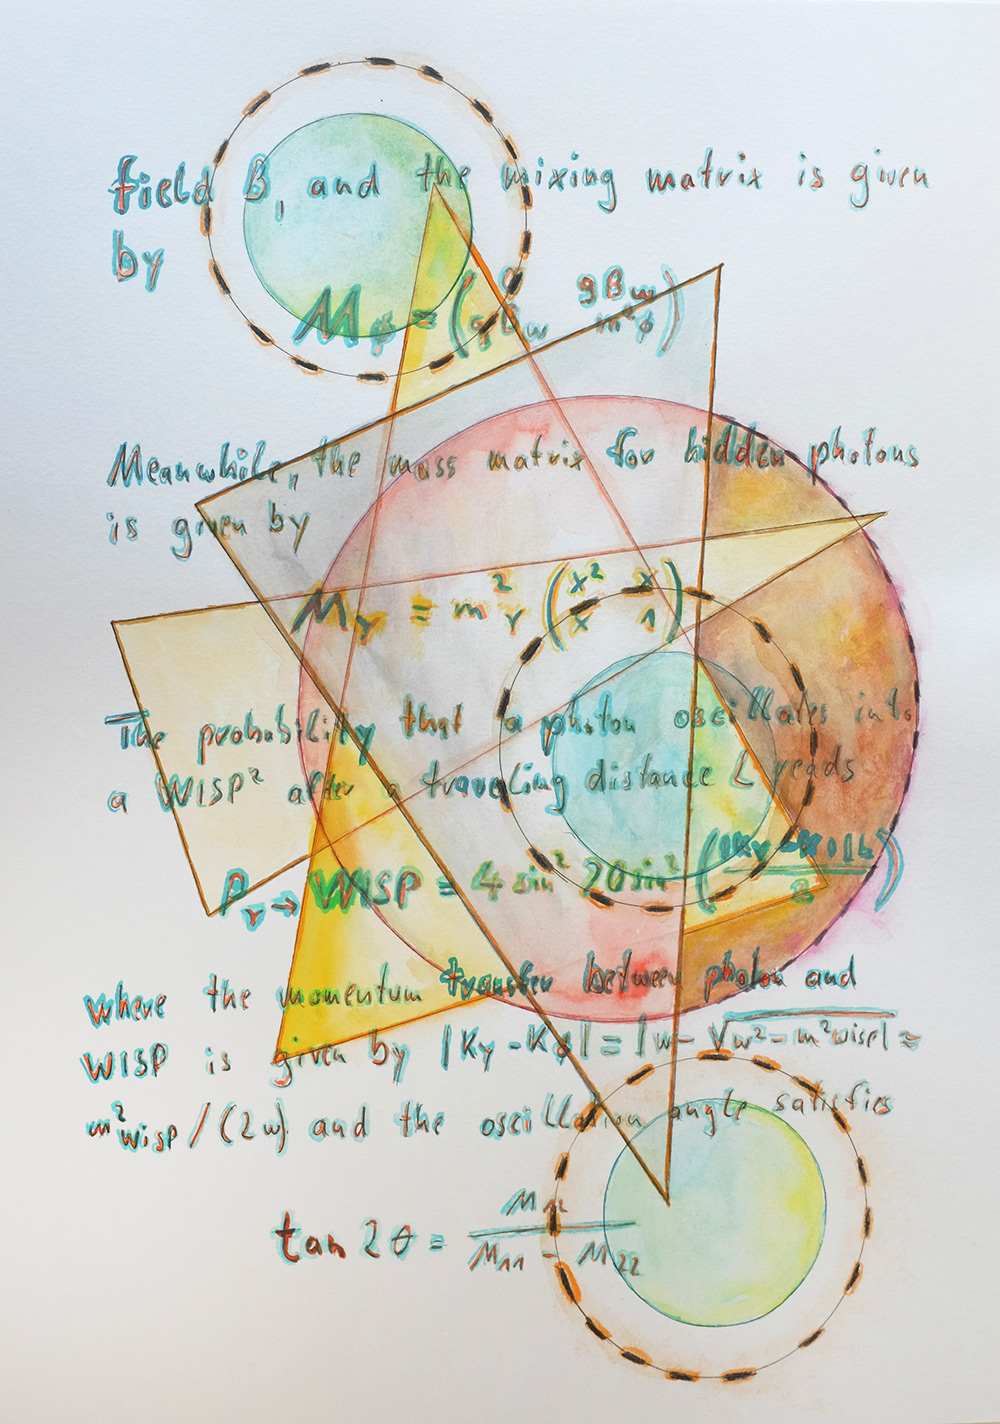 field B, and the mixing matrix is given
by
Mφ = (0 gBw
gBw m²φ)
Meanwhile, the mass matrix for hidden photons
is given by
Mγ = m²γ (x² x
x 1)
The probability that a photon oscillates into
a WISP² after a traveling distance L reads
Pγ→WISP = 4 sin² 2θ sin² (
2)
where the momentum transfer between photon and
WISP is given by |Kγ - Kφ| = |w - √w² - m²wisp| ≈
m²wisp / (2w) and the oscillation angle satisfies
tan 2θ = M12
M11 - M22